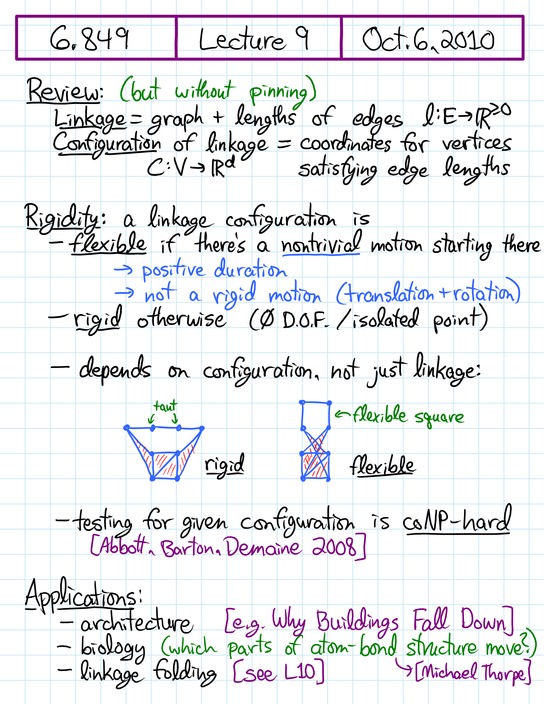 6.849 Lecture 9 Oct. 6, 2010
Review: (but without pinning)
Linkage = graph + lengths of edges l:E→ℝ≥0
Configuration of linkage = coordinates for vertices
C:V→ℝᵈ satisfying edge lengths
Rigidity: a linkage configuration is
– flexible if there's a nontrivial motion starting there
→ positive duration
→ not a rigid motion (translation + rotation)
– rigid otherwise (Ø D.O.F. / isolated point)
– depends on configuration, not just linkage:
taut
← flexible square
rigid flexible
– testing for given configuration is coNP-hard
[Abbott, Barton, Demaine 2008]
Applications:
– architecture [e.g. Why Buildings Fall Down]
– biology (which parts of atom-bond structure move?)
– linkage folding [see L10] ↳[Michael Thorpe]